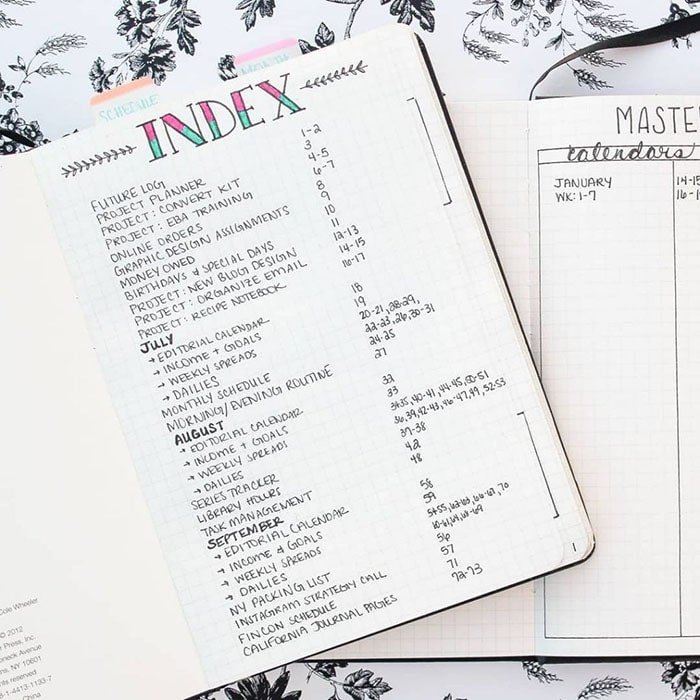 SCHEDULE
INDEX
FUTURE LOG 1-2
PROJECT PLANNER 3
PROJECT: CONVERT KIT 4-5
PROJECT: EBA TRAINING 6-7
ONLINE ORDERS 8
GRAPHIC DESIGN ASSIGNMENTS 9
MONEY OWED 10
BIRTHDAYS & SPECIAL DAYS 11
PROJECT: NEW BLOG DESIGN 12-13
PROJECT: ORGANIZE EMAIL 14-15
PROJECT: RECIPE NOTEBOOK 16-17
JULY
→ EDITORIAL CALENDAR 18
→ INCOME + GOALS 19
→ WEEKLY SPREADS 20-21, 28-29,
→ DAILIES 22-23, 26, 30-31
MONTHLY SCHEDULE 24-25
MORNING/EVENING ROUTINE 27
AUGUST
→ EDITORIAL CALENDAR
→ INCOME + GOALS 33
→ WEEKLY SPREADS 34-35, 40-41, 44-45, 50-51
→ DAILIES 36, 39, 42-43, 46-47, 49, 52-53
SERIES TRACKER 37-38
LIBRARY HOURS 42
TASK MANAGEMENT 48
SEPTEMBER
→ EDITORIAL CALENDAR 58
→ INCOME & GOALS 59
→ WEEKLY SPREADS 54-55, 62-63, 66-67, 70
→ DAILIES 60-61, 64, 68-69
NY PACKING LIST 56
INSTAGRAM STRATEGY CALL 57
FINCON SCHEDULE 71
CALIFORNIA JOURNAL PAGES 72-73
1
MASTE
calendars
JANUARY 14-15
WK: 1-7 16-1
Cole Wheeler
© 2012
Press, Inc.
Avenue
NY 10601
1-4413-1133-7